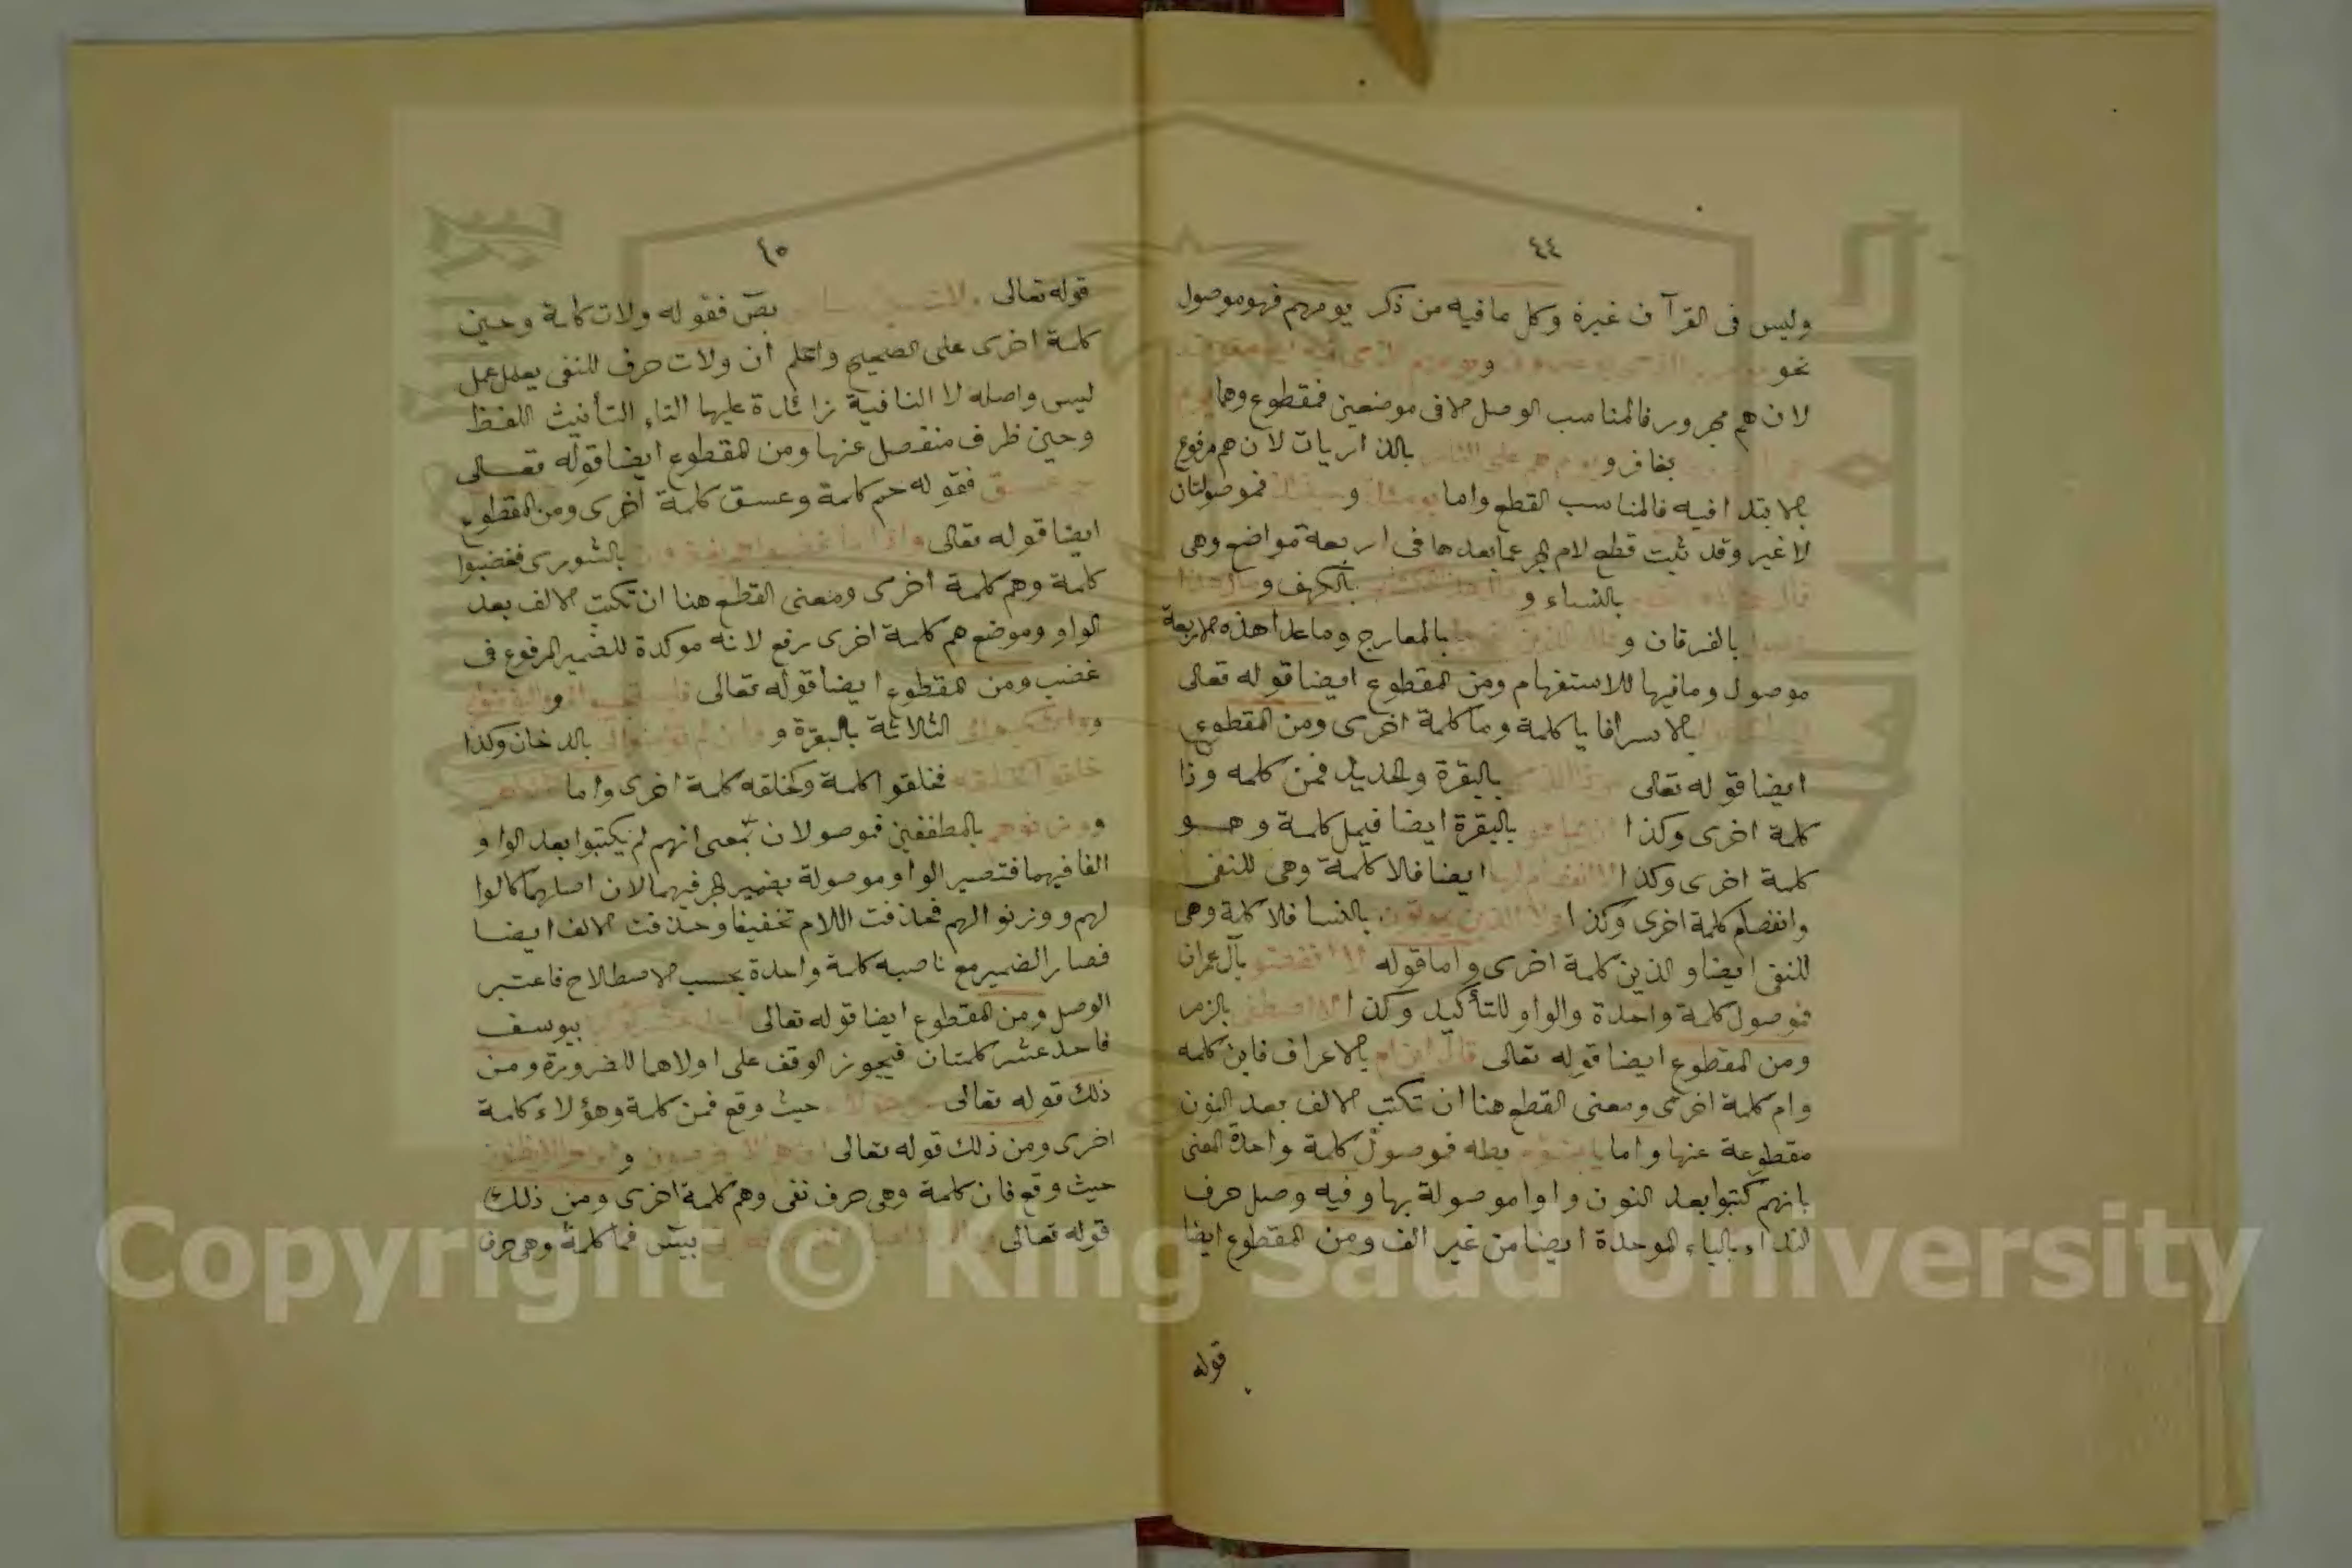 ٤٤
وليس فى القرآن غيره وكل ما فيه من ذكر يومهم فهو موصول
نحو و
لان هم مجرور فالمناسب الوصل الا فى موضعين فمقطوع وهما
بغافر و يوم هم على النار بالذاريات لان هم مرفوع
بالابتدا فيه فالمناسب القطع واما يومئذ و فموصولتان
لا غير وقد ثبت قطع لام الجر عما بعدها فى اربعة مواضع وهى
بالنساء و بالكهف و
بالفرقان و بالمعارج وما عدا هذه الاربعة
موصول وما فيها للاستفهام ومن المقطوع ايضا قوله تعالى
بالاسرا فايا كلمة وما كلمة اخرى ومن المقطوع
ايضا قوله تعالى بالبقرة والحديد فمن كلمه وذا
كلمة اخرى وكذا بالبقرة ايضا فيمل كلمة وهو
كلمة اخرى وكذا لا انفصام لها ايضا فلا كلمة وهى للنفى
وانفصام كلمة اخرى وكذا ولا الذين يموتون بالنسا فلا كلمة وهى
للنفى ايضا والذين كلمة اخرى واما قوله لا انفضوا بآل عمران
فموصول كلمة واحدة والواو للتأكيد وكذا لاصطفى بالزمر
ومن المقطوع ايضا قوله تعالى قال ابن ام بالاعراف فابن كلمه
وام كلمة اخرى ومعنى القطع هنا ان تكتب الالف بعد النون
مقطوعة عنها واما يابنؤم بطه فموصول كلمة واحدة المعنى
بانهم كتبوا بعد النون واوا موصولة بها وفيه وصل حرف
النداء بالباء الموحدة ايضا من غير الف ومن المقطوع ايضا
قوله
٤٥
قوله تعالى ولات حين مناص بص فقوله ولات كلمة وحين
كلمة اخرى على الصحيح واعلم ان ولات حرف للنفى يعمل عمل
ليس واصله لا النافية زائدة عليها التاء التأنيث اللفظ
وحين ظرف منفصل عنها ومن المقطوع ايضا قوله تعالى
حم عسق فقوله حم كلمة وعسق كلمة اخرى ومن المقطوع
ايضا قوله تعالى واذا ما غضبوا هم يغفرون بالشورى فغضبوا
كلمة وهم كلمة اخرى ومعنى القطع هنا ان تكتب الالف بعد
الواو وموضع هم كلمة اخرى رفع لانه موكدة للضمير المرفوع فى
غضب ومن المقطوع ايضا قوله تعالى و
الثلاثة بالبقرة و بالدخان وكذا
خلقوا كخلقه فخلقوا كلمة وكخلقه كلمة اخرى واما كالوهم
ووزنوهم بالمطففين فموصولان بمعنى انهم لم يكتبوا بعد الواو
الفا فيهما فتصير الواو موصولة بضمير الجر فيهما لان اصلهما كالوا
لهم ووزنوا لهم فحذفت اللام تخفيفا وحذفت الالف ايضا
فصار الضمير مع ناصبه كلمة واحدة بحسب الاصطلاح فاعتبر
الوصل ومن المقطوع ايضا قوله تعالى احد عشر كوكبا بيوسف
فاحد عشر كلمتان فيجوز الوقف على اولاهما للضرورة ومن
ذلك قوله تعالى من هؤلاء حيث وقع فمن كلمة وهؤلاء كلمة
اخرى ومن ذلك قوله تعالى ان هم الا يخرصون و ان هم الا يظنون
حيث وقع فان كلمة وهى حرف نفى وهم كلمة اخرى ومن ذلك
قوله تعالى بيس فما كلمة وهى حرف
Copyright © King Saud University